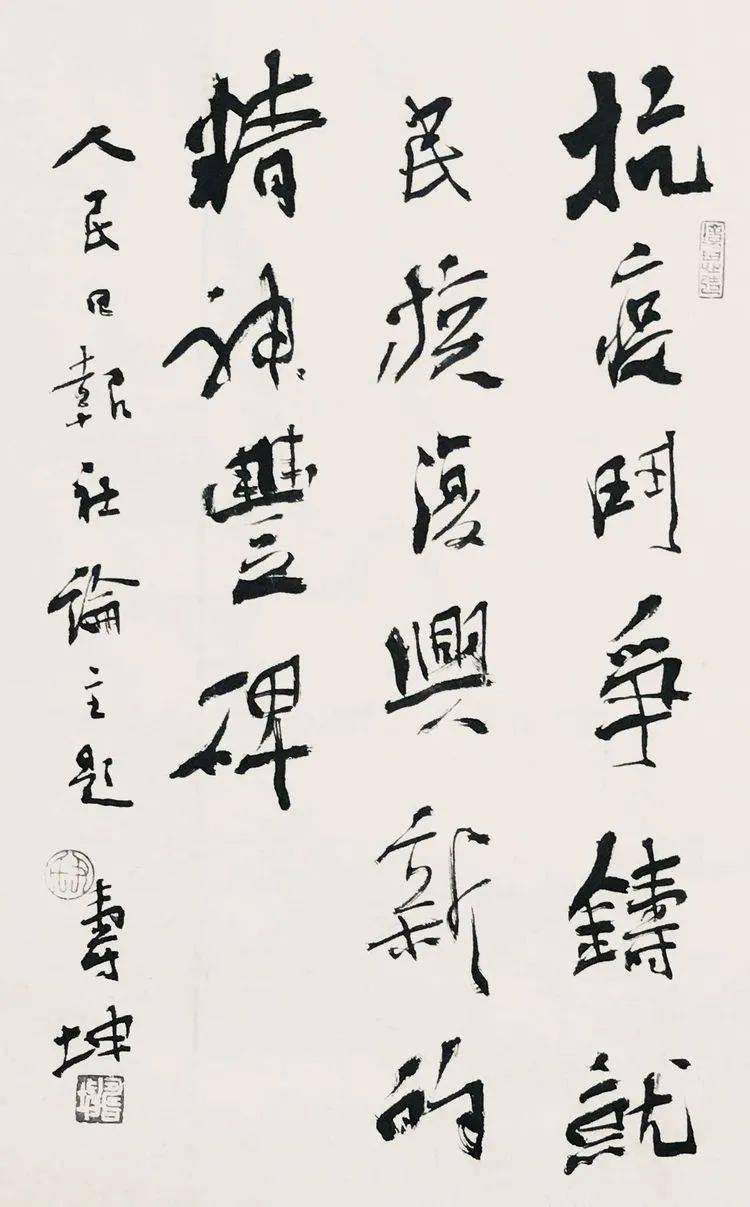 抗疫鬥爭鑄就
民族復興新的
精神豐碑
人民日報社論主題
壽坤